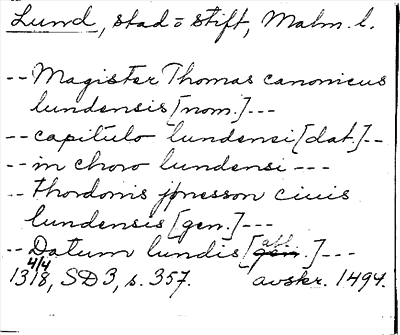 Lund, stad o stift, Malm. l.
-- Magister Thomas canonicus
lundensis [nom.] ---
-- capitulo lundensi [dat.] --
-- in choro lundensi ---
-- Thordonis jønesson ciuis
lundensis [gen.] ---
-- Datum lundis [abl.] ---
4/4
1318, SD 3, s. 357. avskr. 1494.